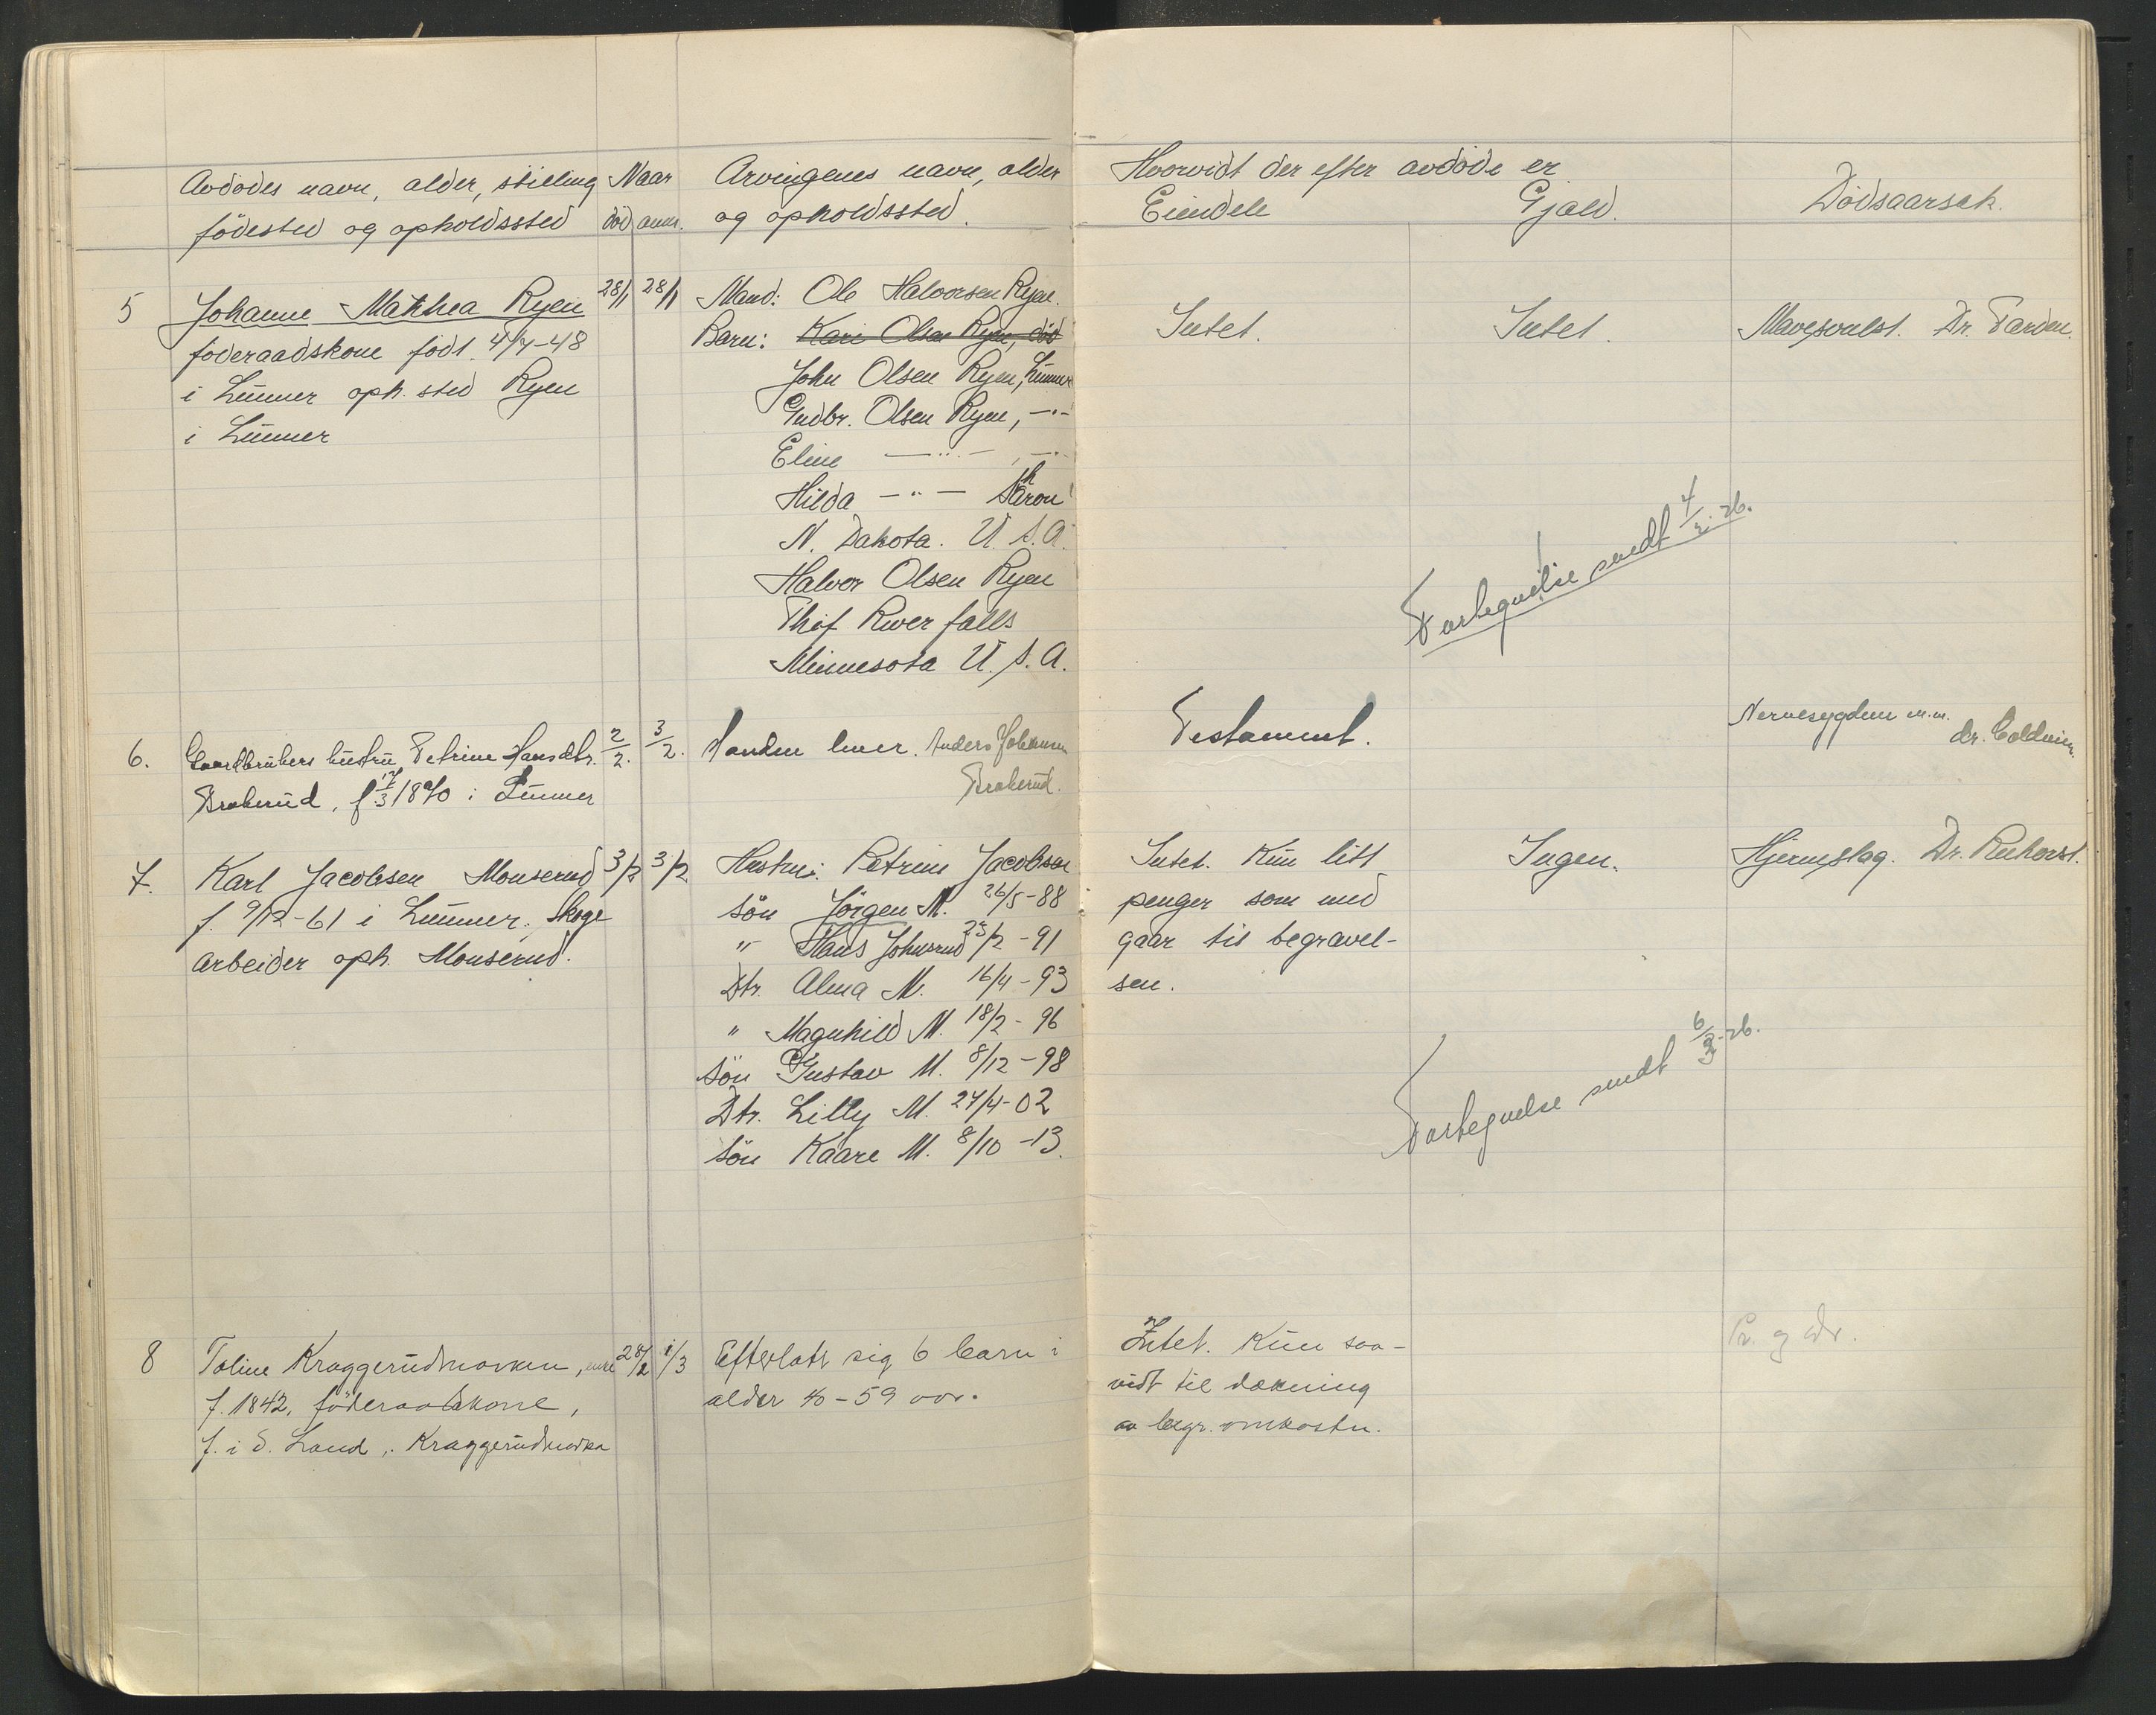 Avdødes navn, alder, stilling
fødested og opholdssted
Naar
død anm.
Arvingenes navn, alder
og opholdssted.
Hvorvidt der efter avdøde er
Eiendele Gjæld.
Dødsaarsak.
5 Johanne Mathea Ryen 28/1 28/1
føderaadskone født 4/4-48
i Lunner oph. sted Ryen
i Lunner
Mand: Ole Halvorsen Ryen.
Barn: Kari Olsen Ryen, død
John Olsen Ryen, Lunner
Gudbr. Olsen Ryen, -"-
Eline -"- , -"-
Hilda -"-
N. Dakota. U. S. A.
Halvor Olsen Ryen
Thif River falls
Minnesota U. S. A.
Intet. Intet. Mavesvulst. Dr. Farden.
Fortegnelse sendt 4/2-26.
6. Gaardbrukers hustru Petrine Hansdtr. 2/2. 3/2.
Brakerud, f. 17/3 1840 i Lunner
Manden lever. Anders Johansen
Brakerud.
Testament.
Nervesygdom m.m.
7. Karl Jacobsen Monserud 3/2 3/2
f. 9/12-61 i Lunner. Skogs
arbeider oph. Monserud.
Hustru: Petrine Jacobsen
Søn Jörgen M. 26/5-88
" Hans Johnsrud 23/2-91
Dtr. Alma M. 16/4-93
" Magnhild M. 18/2-96
Søn Gustav M. 8/12-98
Dtr. Lilly M. 24/4-02
Søn Kaare M. 8/10-13.
Intet. Kun litt
penger som med
gaar til begravel-
sen.
Ingen.
Hjerneslag.
Fortegnelse sendt 6/3-26.
8 Toline Kraggerudmarken, enke 28/2 1/3
f. 1842, føderaadskone,
f. i S. Land, Kraggerudmarka
Efterlatt sig 6 barn i
alder 40-59 aar.
Intet. Kun saa-
vidt til dækning
av begr. omkostn.